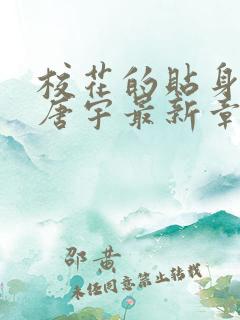 校花的贴身
唐宇最新章
邵黄
未经同意禁止转载